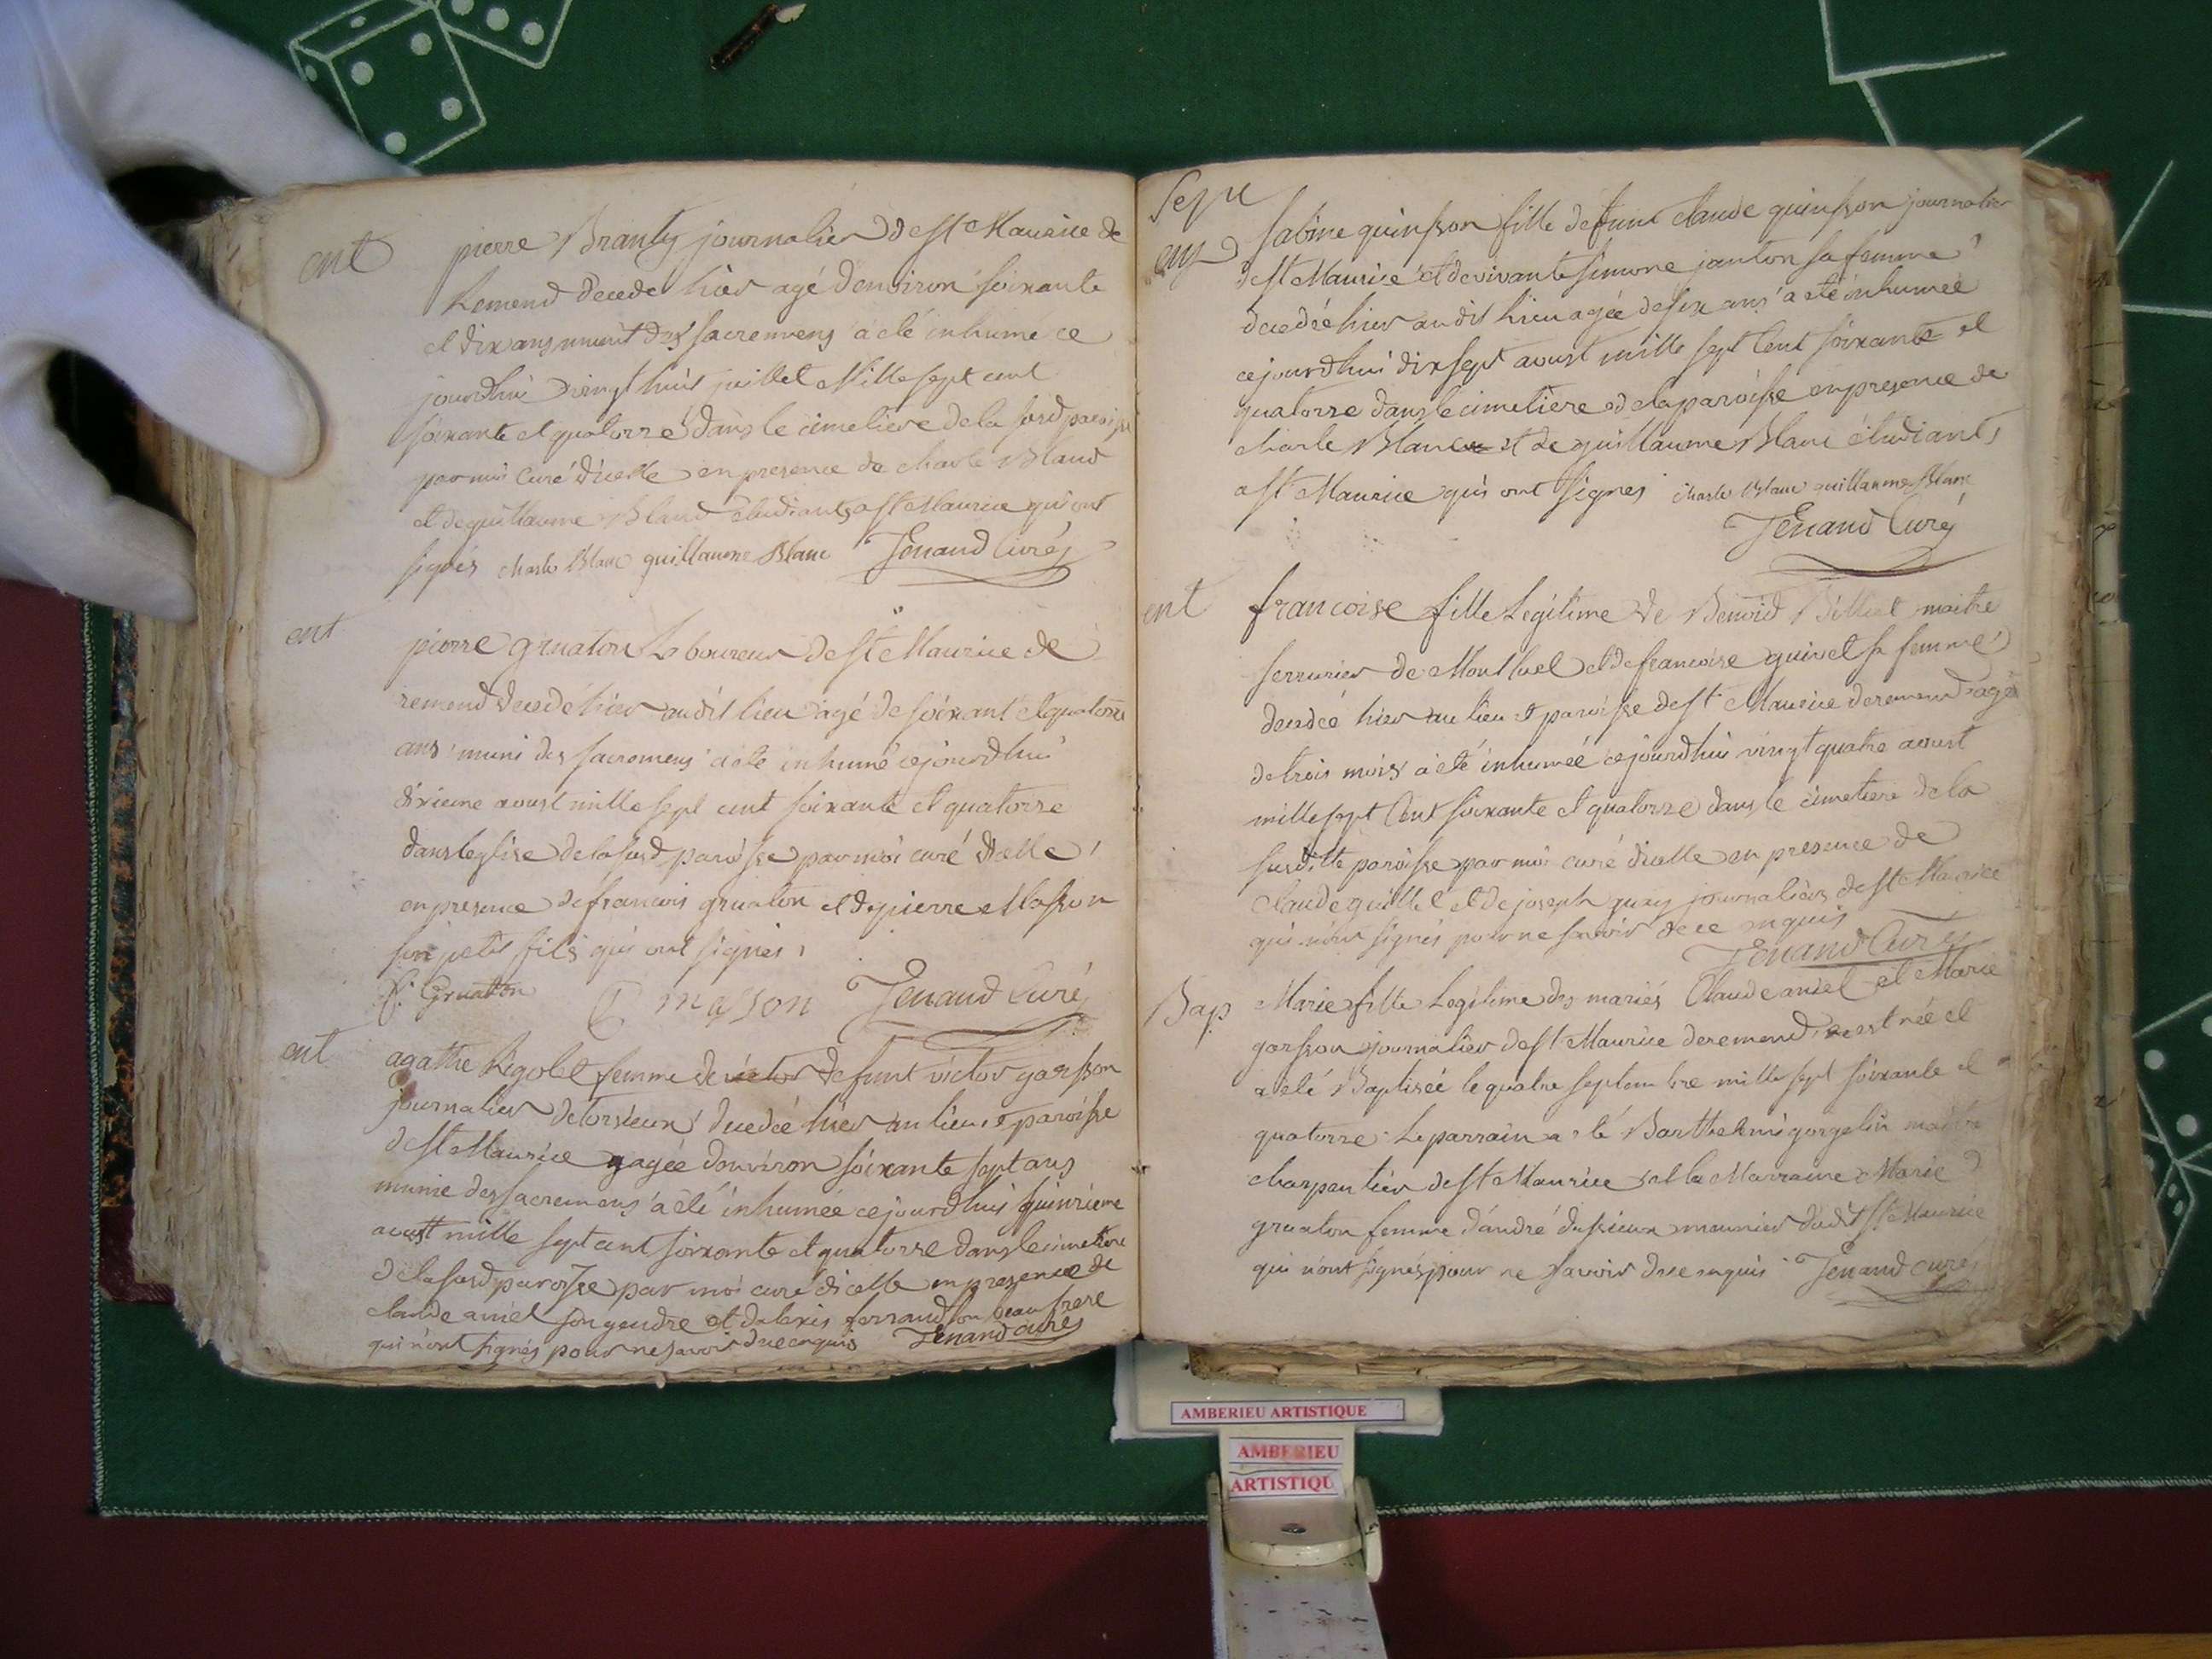 ent
pierre Branly journalier de st Maurice de
Remend decede hier agé denviron soixante
et dix ans muni des sacremens a eté inhumé ce
jourdhui vingt huit juillet Mille sept cent
soixante et quatorze dans le cimetiere de la susd paroisse
par moi curé dicelle en presence de charle Blanc
et de guillaume Blanc étudiants a st Maurice qui ont
signés charle Blanc guillaume Blanc Jenand Curé
ent
pierre gruaton Laboureur de st Maurice de
remend decedé hier audit lieu agé de soixant et quatorze
ans muni des sacremens a eté inhumé cejourdhui
dixieme aoust mille sept cent soixante et quatorze
dans leglise de la susd paroisse par moi curé dicelle
en presence de francois gruaton et de pierre Masson
son petit fils qui ont signés
f. Gruaton P masson Jenand Curé
ent
agathe Rigolet femme de victor defunt victor garsson
journalier de torsieux decedeé hier au lieu et paroisse
de st Maurice agée denviron soixante sept ans
munie des sacremens a eté inhumée cejourdhui quinzieme
aoust mille sept cent soixante et quatorze dans le cimetiere
de la susd paroisse par moi curé dicelle en presence de
claude amiel son gendre et dalexis ferrand son beau frere
qui n'ont signés pour ne savoir de ce enquis Jenand curé
Sepu
sabine quinsson fille de funt claude quinsson journalier
de st Maurice et de vivante simone janton sa femme
decedeé hier audit lieu agée de six ans a eté inhumée
cejourdhui dix sept aoust mille sept Cent soixante et
quatorze dans le cimetiere de la paroisse en presence de
charle Blanc et de guillaume Blanc étudiants
a st Maurice qui ont signes charle Blanc guillaume Blanc
Jenand Curé
ent
francoise fille Legitime de Benoid Billiet maitre
serrurier de Montluel et de francoise guivet sa femme
decedeé hier au lieu et paroisse de st Maurice de remend agé
de trois mois a eté inhumeé cejourdhui vingt quatre aoust
mille sept Cent soixante et quatorze dans le cimetiere de la
susditte paroisse par moi curé dicelle en presence de
Claude guillet et de joseph guay journaliers de st Maurice
qui n'ont signés pour ne savoir de ce enquis
Jenand Curé
Bap
Marie fille Legitime des mariés Claude amiel et Marie
garsson journalier de st Maurice de remend est née et
a eté Baptiseé le quatre septembre mille sept soixante et
quatorze Le parrain a eté Barthelemi gorgelin maitre
charpentier de st Maurice et la Marraine Marie
gruaton femme d'andré dussieux meunier dudit st Maurice
qui n'ont signés pour ne savoir de ce enquis Jenand curé
AMBERIEU ARTISTIQUE
AMBERIEU
ARTISTIQU